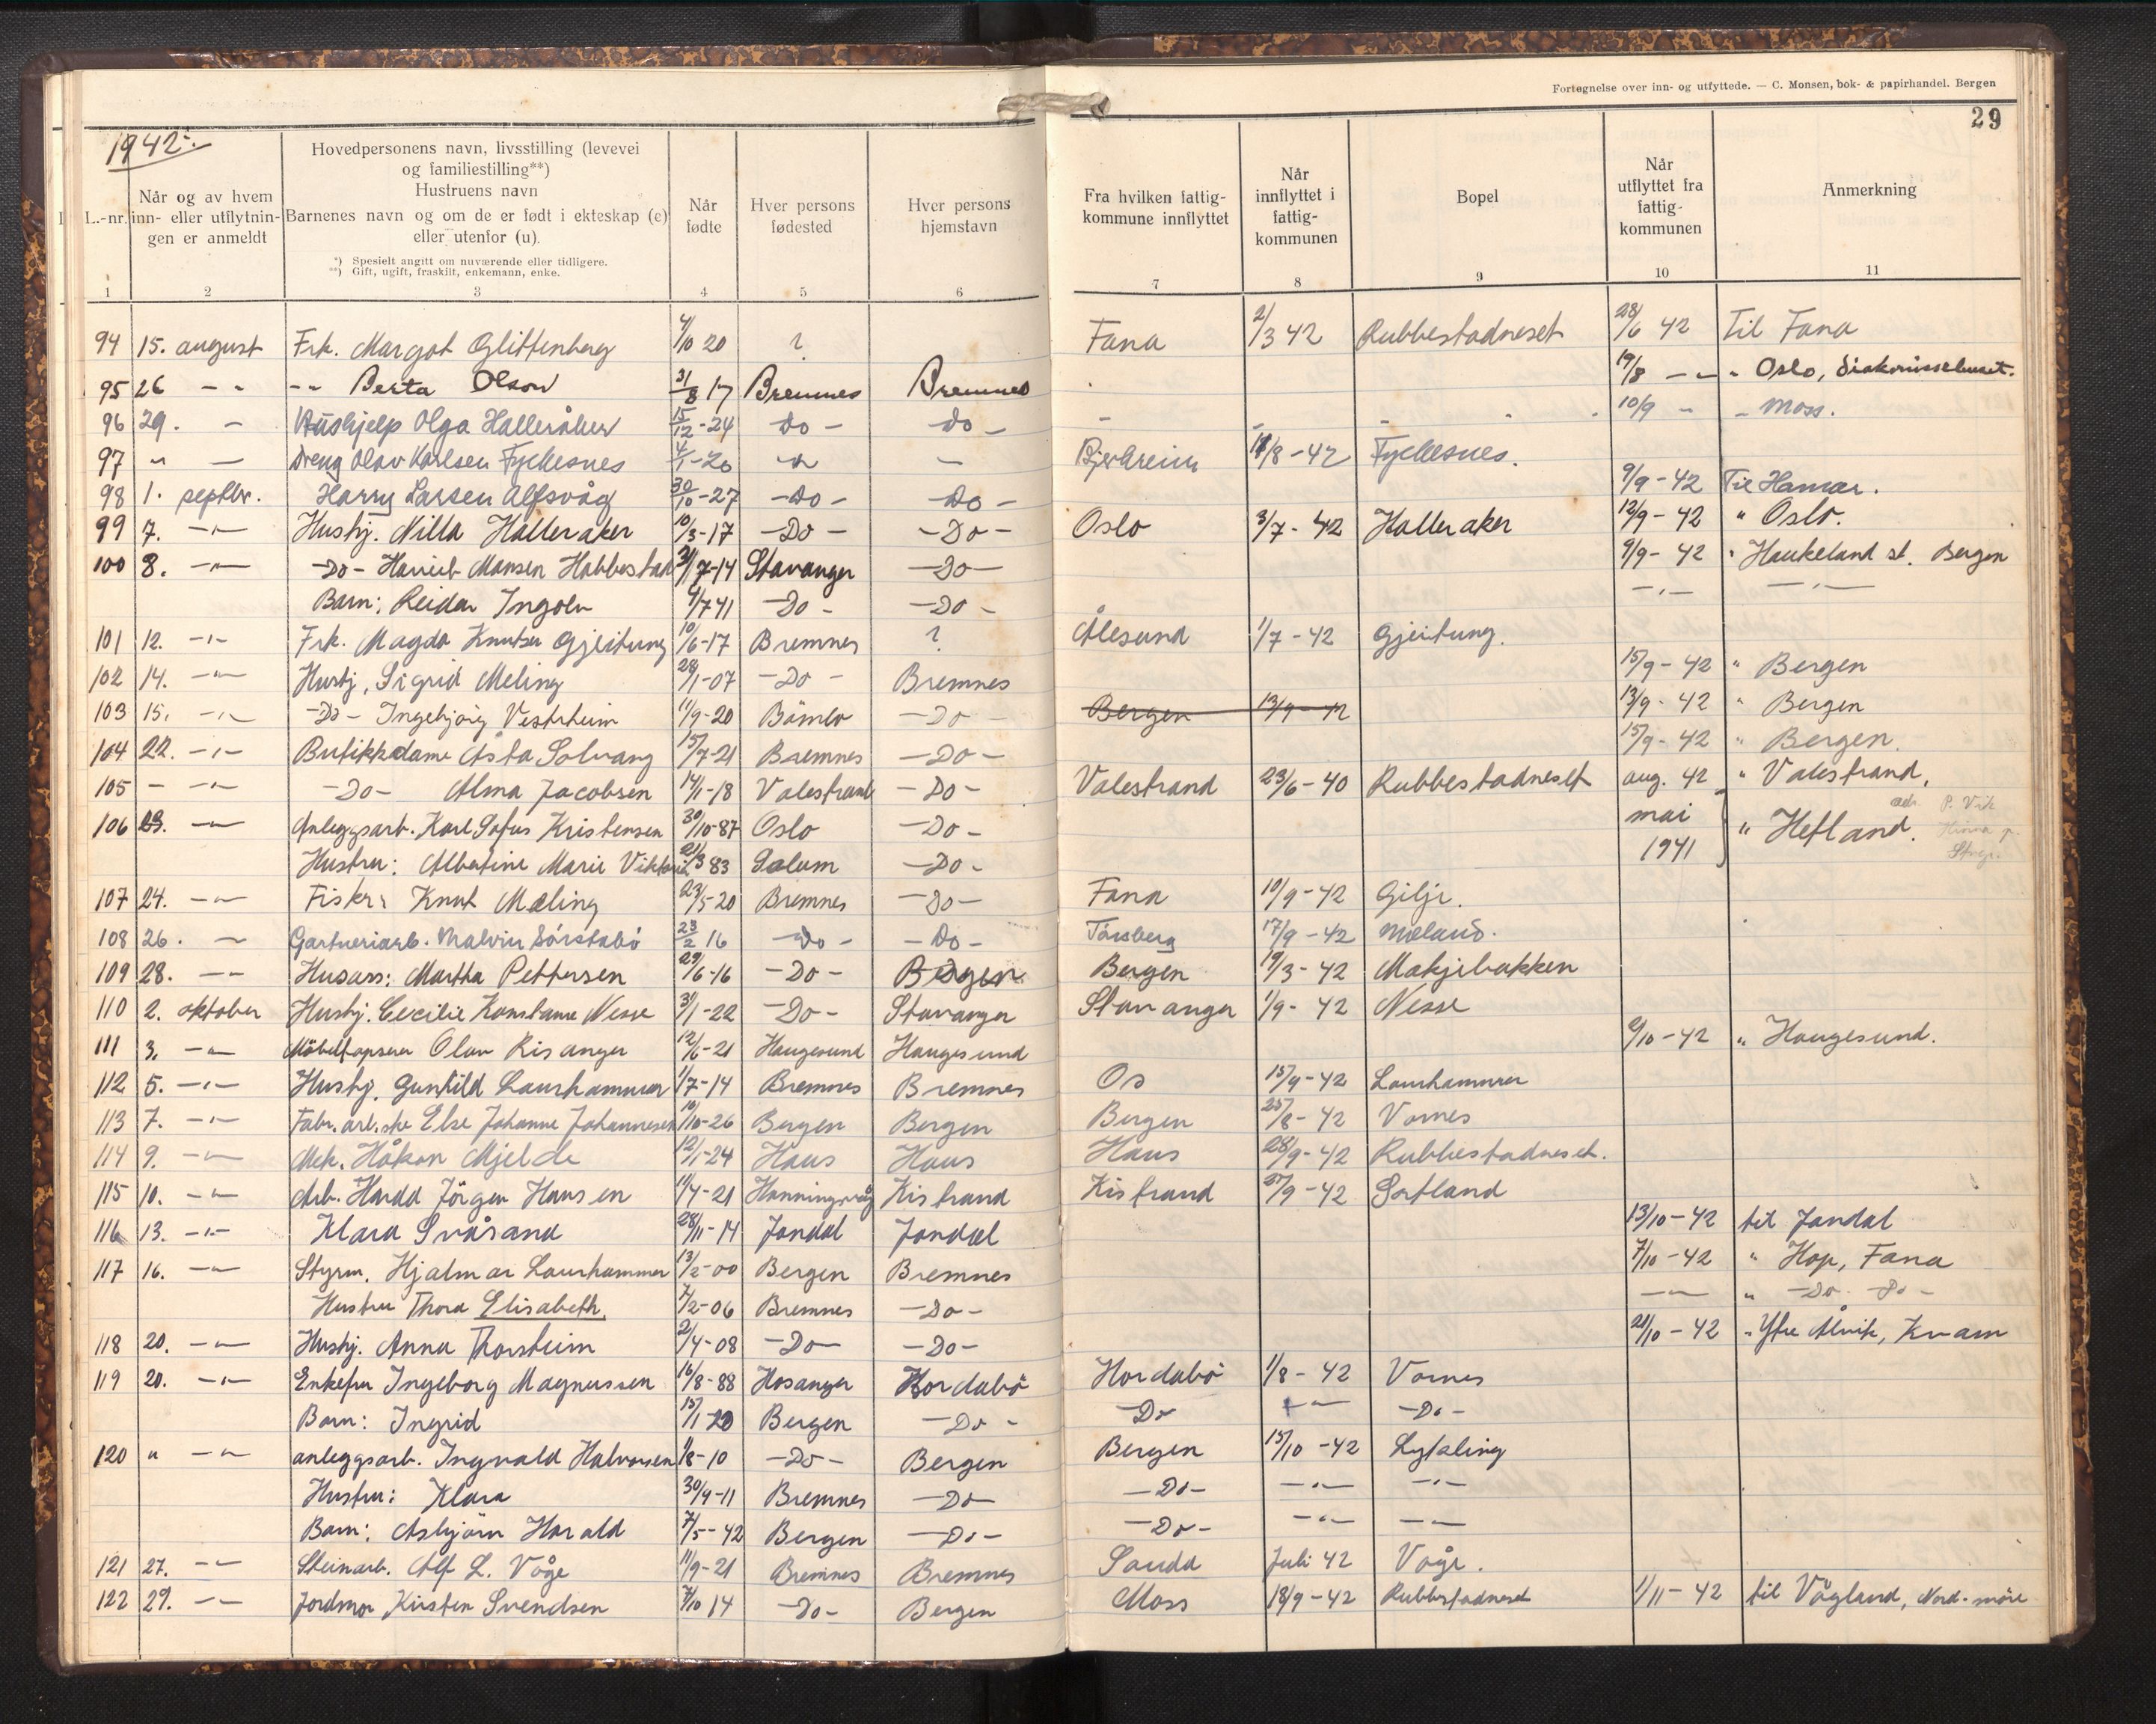 Fortegnelse over inn- og utfyttede. — C. Monsen, bok- & papirhandel. Bergen
29
1942.
L.-nr. | Når og av hvem inn- eller utflytningen er anmeldt | Hovedpersonens navn, livsstilling (levevei og familiestilling**) Hustruens navn Barnenes navn og om de er født i ekteskap (e) eller utenfor (u). *) Spesielt angitt om nuværende eller tidligere. **) Gift, ugift, fraskilt, enkemann, enke. | Når fødte | Hver persons fødested | Hver persons hjemstavn | Fra hvilken fattigkommune innflyttet | Når innflyttet i fattigkommunen | Bopel | Når utflyttet fra fattigkommunen | Anmerkning
1 2 3 4 5 6 7 8 9 10 11
94 15. august Frk. Margot Glittenberg 4/10 20 ? Fana 2/3 42 Rubbestadneset 28/6 42 Til Fana
95 26 - - -"- Berta Olson 31/8 17 Bremnes Bremnes 19/8 -"- " Oslo, Diakonissehuset.
96 29. - Hushjelp Olga Halleråker 15/12-24 Do - Do - 10/9 " - Moss.
97 " - Dreng Olav Karlsen Fyllesnes 4/1-20 -"- - Bjerkreim 11/8-42 Fyllesnes.
98 1. septbr. Harry Larsen Alfsvåg 30/10-27 -Do- -Do- 9/9-42 Til Hamar.
99 7. -"- Hushj. Nilla Halleraker 10/3-17 -Do- -Do- Oslo 3/7-42 Halleraker 12/9-42 " Oslo.
100 8. -"- -Do- Mansen Habbestad 31/7-14 Stavanger -Do- 9/9-42 " Haukeland st. Bergen
Barn: Reidar Ingolv 9/7 41 -Do- -Do- -"- -"-
101 12. -"- Frk. Magda Knutsen Gjeitung 10/6-17 Bremnes ? Ålesund 1/7-42 Gjeitung.
102 14. -"- Hushj. Sigrid Meling 28/1-07 -Do- Bremnes 15/9-42 " Bergen
103 15. -"- -Do- Ingebjørg Vestrheim 11/9-20 Bömlo -Do- Bergen 13/9-42 13/9-42 " Bergen
104 22. -"- Butikkdame Åsta Solvang 15/7-21 Bremnes -Do- 15/9-42 " Bergen.
105 - -"- -Do- Alma Jacobsen 14/11-18 Valestrand -Do- Valestrand 23/6-40 Rubbestadneset aug. 42 " Valestrand,
106 23. -"- Anleggsarb. Karl Sofus Kristensen 30/10-87 Oslo -Do- mai 1941 " Hetland. adr. P. Vik
Hustru: Albertine Marie Viktoria 21/3 83 Solum -Do-
107 24. -"- Fisker Knut Meling 23/5-20 Bremnes -Do- Fana 10/9-42 Gilje.
108 26. - Gartneriarb. Malvin Sørstabö 23/2 16 -Do- -Do- Tönsberg 17/9-42 Meland.
109 28. -- Husass: Martha Pettersen 29/6-16 -Do- Bergen Bergen 19/3-42 Makjibakken
110 2. oktober Hushj. Cecilie Konstanse Nesse 31/1-22 -Do- Stavanger Stavanger 1/9-42 Nesse
111 3. -"- Möbeltapserer Olav Risanger 12/6-21 Haugesund Haugesund 9/10-42 " Haugesund.
112 5. -"- Hushj. Gunhild Laurhammer 1/7-14 Bremnes Bremnes Os 15/9-42 Laurhammer
113 7. -"- Fabr.arb.ske Else Johanne Johannesen 10/10-26 Bergen Bergen Bergen 25/8-42 Vornes
114 9. -"- Mek. Håkon Mjelde 12/1-24 Haus Haus Haus 28/9-42 Rubbestadneset.
115 10. -"- Arb. Jörgen Hansen 11/4-21 Honningsvåg Kistrand Kistrand 27/9-42 Sortland
116 13. -"- Klara Svåsand 28/11-14 Jondal Jondal 13/10-42 til Jondal
117 16. -"- Styrm. Hjalmar Laurhammer 13/2-00 Bergen Bremnes 7/10-42 " Hop, Fana
Hustru Thora Elisabeth. 7/2-06 Bremnes -Do- -"- " -Do- Do-
118 20. -"- Hushj. Anna Thorsheim 2/4-08 -Do- -Do- 21/10-42 " Ytre Ålvik, Kvam
119 20. -"- Enkefru Ingeborg Magnussen 16/8-88 Hosanger Hordabö Hordabö 1/8-42 Vornes
Barn: Ingrid 15/1-20 Bergen -Do- Do -"- -Do-
120 " -"- anleggsarb. Ingvald Halvorsen 1/8-10 -Do- Bergen Bergen 15/10-42 Lykling
Hustru: Klara 30/9-11 Bremnes -Do- -Do- -"- -"-
Barn: Asbjørn Harald 7/5-42 Bergen -Do- -Do- -"- -"-
121 27. -"- Steinarb. Alf L. Våge 11/9-21 Bremnes Bremnes Sauda Juli 42 Våge.
122 29. -"- Jordmor Kirsten Svendsen 7/10 14 -Do- Bergen Moss 18/9-42 Rubbestadneset 1/11-42 til Vågland, Nord-möre